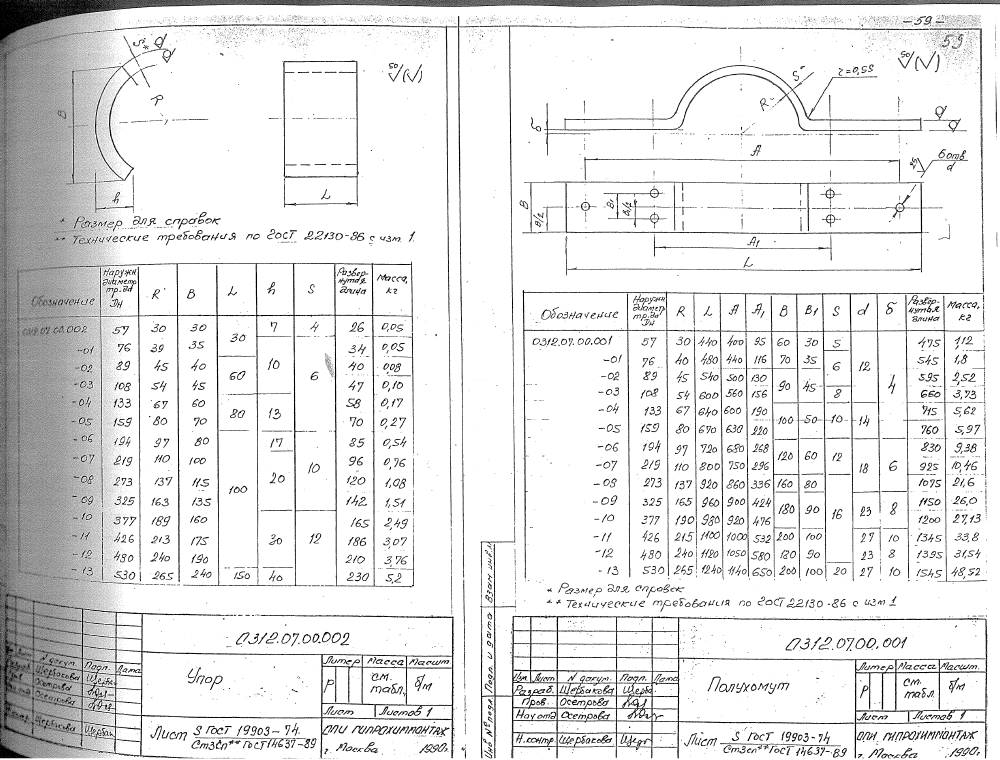 - 59 -
59
S* R B h L
50
* Размер для справок
** Технические требования по ГОСТ 22130-86 с изм 1.
Обозначение Наружн диаметр тр-да Dн R B L h S Развер- нутая длина Масса, кг
57 30 30 30 7 4 26 0,05
-01 76 39 35 34 0,05
-02 89 45 40 60 10 6 40 0,08
-03 108 54 45 47 0,10
-04 133 67 60 80 13 58 0,17
-05 159 80 70 70 0,27
-06 194 97 80 100 17 10 85 0,54
-07 219 110 100 20 96 0,76
-08 273 137 115 120 1,08
-09 325 163 135 142 1,51
-10 377 189 160 30 12 165 2,49
-11 426 213 175 186 3,07
-12 480 240 190 210 3,76
-13 530 265 240 150 40 230 5,2
0312.07.00.002
Упор
Литер Масса Масшт.
Р см. табл. б/м
Лист Листов 1
N докум. Подп. Дата
Щербакова
Осетрова
Осетрова
Щербакова
Лист S ГОСТ 19903-74
Ст3сп** ГОСТ 14637-89
ОПИ ГИПРОХИММОНТАЖ
г. Москва 1990г.
50
S* R r=0,5S
A
25
6 отв d
B B/2 B1 B1/2
A1
L
Обозначение Наружн диаметр тр-да Dн R L A A1 B B1 S d б Развер- нутая длина Масса, кг
0312.07.00.001 57 30 440 400 95 60 30 5 12 4 475 1,12
-01 76 40 480 440 116 70 35 6 545 1,8
-02 89 45 540 500 130 90 45 595 2,52
-03 108 54 600 560 156 8 660 3,73
-04 133 67 640 600 190 100 50 10 14 715 5,62
-05 159 80 670 630 220 760 5,97
-06 194 97 720 680 268 120 60 12 18 6 830 9,38
-07 219 110 800 750 296 925 10,46
-08 273 137 920 860 336 160 80 16 1075 21,6
-09 325 165 960 900 424 180 90 23 8 1150 26,0
-10 377 190 980 920 476 1200 27,13
-11 426 215 1100 1000 532 200 100 27 10 1345 33,8
-12 480 240 1120 1050 580 180 90 23 8 1395 31,54
-13 530 265 1240 1140 650 200 100 20 27 10 1545 48,52
* Размер для справок
** Технические требования по ГОСТ 22130-86 с изм 1
Взам. инв. N
Подп. и дата
Инв N° подл.
0312.07.00.001
Полухомут
Литер Масса Масшт.
Р см. табл. б/м
Лист Листов 1
Изм Лист N докум. Подп. Дата
Разраб. Щербакова
Пров. Осетрова
Нач отд Осетрова
Н.контр. Щербакова
Лист S ГОСТ 19903-74
Ст3сп** ГОСТ 14637-89
ОПИ ГИПРОХИММОНТАЖ
г. Москва 1990г.